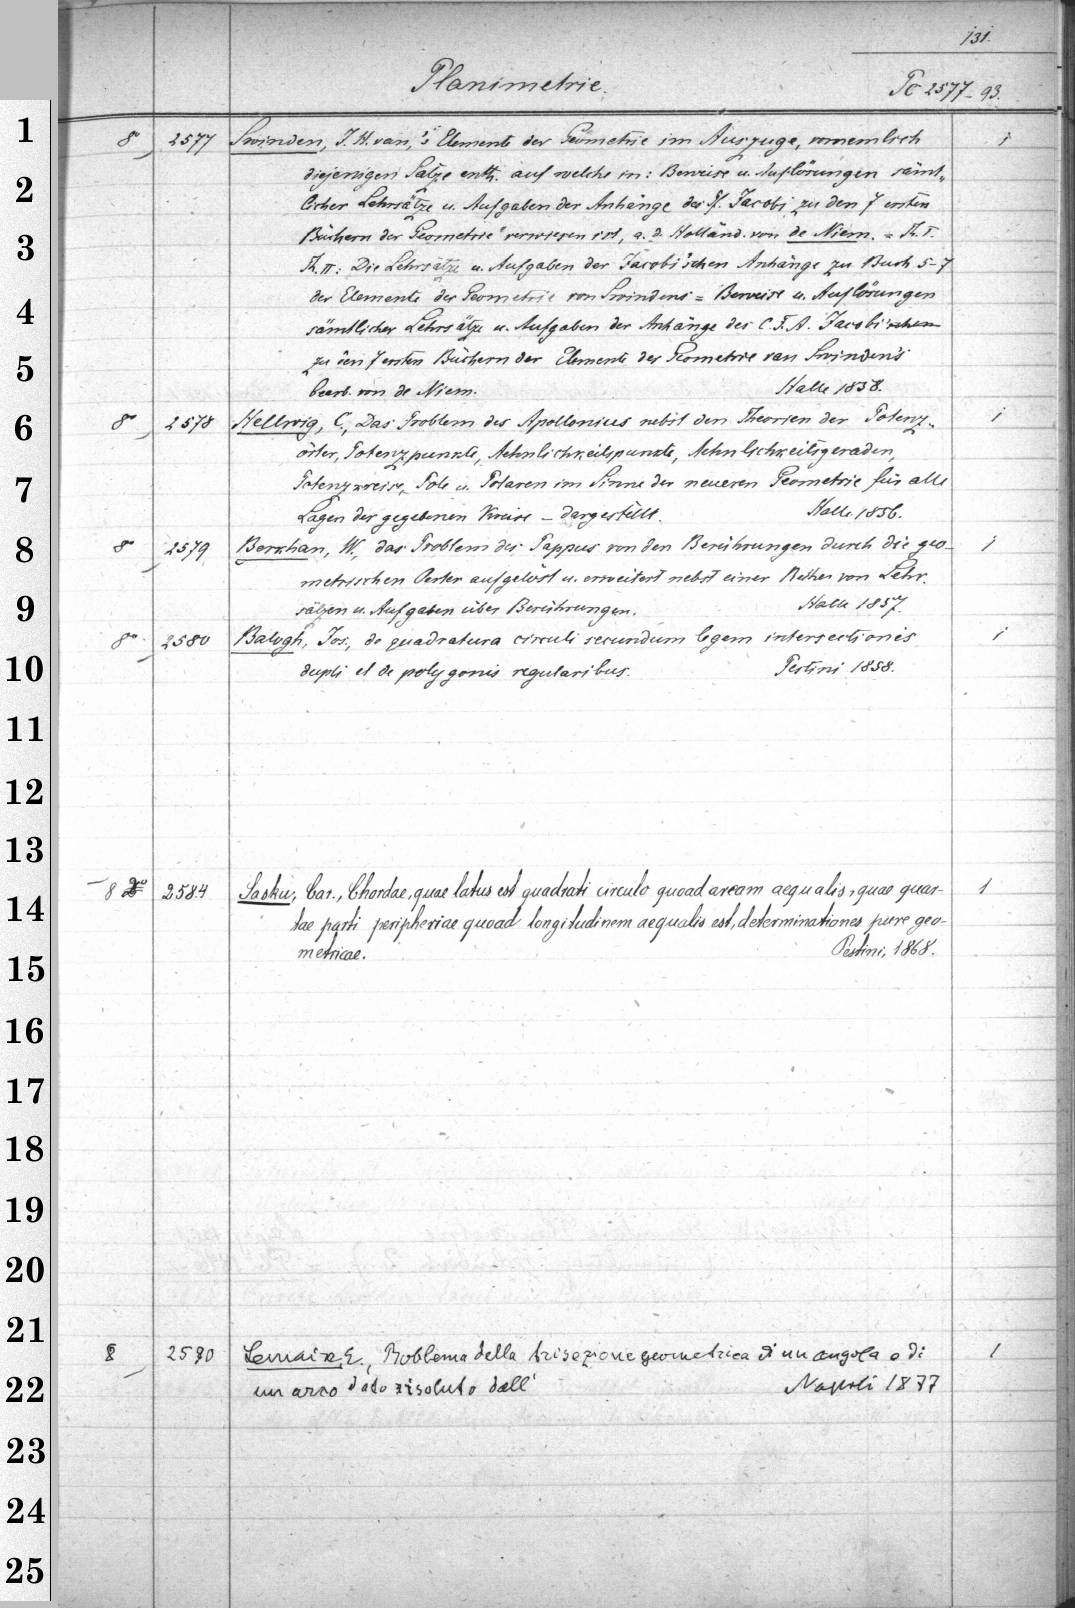 131.
Planimetrie.
Pc 2577-93.
1
8° 2577 Swinden, J. H. van, 's Elemente der Geometrie im Auszuge, vornemlich 1
diejenigen Sätze enth. auf welche in: Beweise u. Auflösungen sämt-
2
licher Lehrsätze u. Aufgaben der Anhänge des Jacobi zu den 7 ersten
3
Büchern der Geometrie" verwiesen ist, a. d. Holländ. von de Niem. = Th. I.
Th. II: Die Lehrsätze u. Aufgaben der Jacobi'schen Anhänge zu Buch 5-7
der Elemente der Geometrie von Swindens = Beweise u. Auflösungen
4
sämtlicher Lehrsätze u. Aufgaben der Anhänge des C. F. A. Jacobi'schen
zu den 7 ersten Büchern der Elemente der Geometrie van Swinden's
5
bearb. von de Niem. Halle 1838.
6
8° 2578 Hellwig, C., Das Problem des Apollonius nebst den Theorien der Potenz-
örter, Potenzpunkte, Aehnlichkeitspunkte, Aehnlichkeitsgeraden, 1
7
Potenzkreise, Pole u. Polaren im Sinne der neueren Geometrie für alle
Lagen der gegebenen Kreise - dargestellt. Halle 1856.
8
8° 2579 Berkhan, W., das Problem des Pappus von den Berührungen durch die geo- 1
metrischen Oerter aufgelöst u. erweitert nebst einer Reihe von Lehr-
9
sätzen u. Aufgaben über Berührungen. Halle 1857.
8° 2580 Balogh, Jos., de quadratura circuli secundum legem intersectionis 1
10
dupli et de polygonis regularibus. Pestini 1858.
11
12
13
8 2584 Sasku, Car., Chordae, quae latus est quadrati circulo quoad aream aequalis, quae quar- 1
14
tae parti peripheriae quoad longitudinem aequalis est, determinationes pure geo-
metricae. Pestini, 1868.
15
16
17
18
19
20
21
8 2590 Lemaire E., Problema della trisezione geometrica di un angola o di 1
22
un arco dato risoluto dall' Napoli 1877
23
24
25